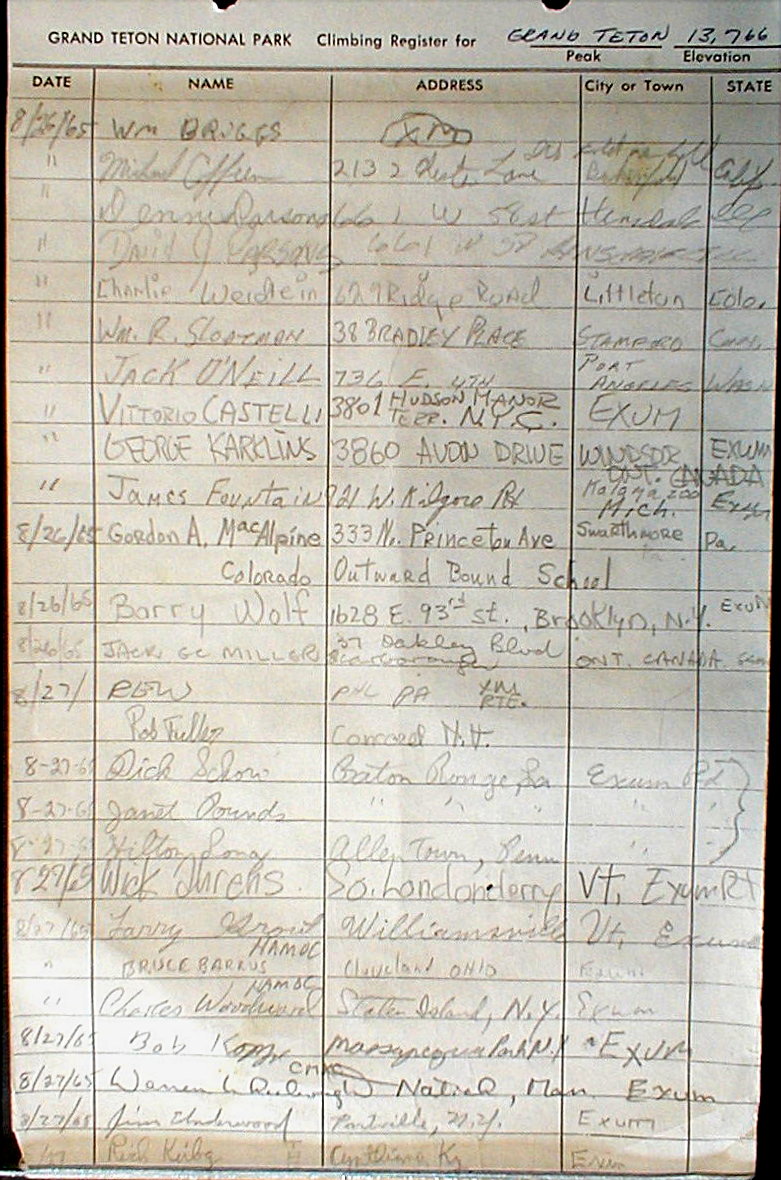 GRAND TETON NATIONAL PARK Climbing Register for GRAND TETON 13,766
Peak Elevation
DATE NAME ADDRESS City or Town STATE
8/26/65 Wm BRIGGS EXM
" Michael 2132 Lane Calif
" Dennis Parsons 661 W 58st Hinsdale Ill
" David J PARSONS 6661 W 58 HINSDALE ILL
" Charlie Weidlein 629 Ridge Road Littleton Colo.
" Wm. R. SLOATMAN 38 BRADLEY PLACE STAMFORD Conn.
" JACK O'NEILL 736 E. 4TH PORT ANGELES WASH
" VITTORIO CASTELLI 3801 HUDSON MANOR TERR. N.Y.C. EXUM
" GEORGE KARKLINS 3860 AVON DRIVE WINDSOR EXUM
ONT. CANADA
" James Fountain 721 W. Kilgore Rd Kalamazoo Mich. Exum
8/26/65 Gordon A. MacAlpine 333 No. Princeton Ave Swarthmore Pa.
Colorado Outward Bound School
8/26/65 Barry Wolf 1628 E. 93rd st., Brooklyn, N.Y. EXUM
8/26/65 JACK GC MILLER 37 Oakley Blvd ONT. CANADA
8/27/ REW PHL PA XM RTE.
Rob Fuller Concord N.H.
8-27-65 Dick Schow Baton Rouge, La Exum Rt
8-27-65 Janet Pounds " " " "
8-27-65 Hilton Long Allen Town, Penn "
8/27/65 Wick Ahrens. So. Londonderry Vt, Exum Rt
8/27/65 Larry Williamsville Vt, Exum
HAMOC
" BRUCE BARRUS Cleveland OHIO Exum
HAMOC
" Charles Woodward Staten Island, N.Y. Exum
8/27/65 Bob Massapequa Park N.Y. EXUM
8/27/65 Warren Natick, Mass. Exum
8/27/65 Jim Underwood Portville, N.Y. Exum
Rich Cynthiana Ky Exum